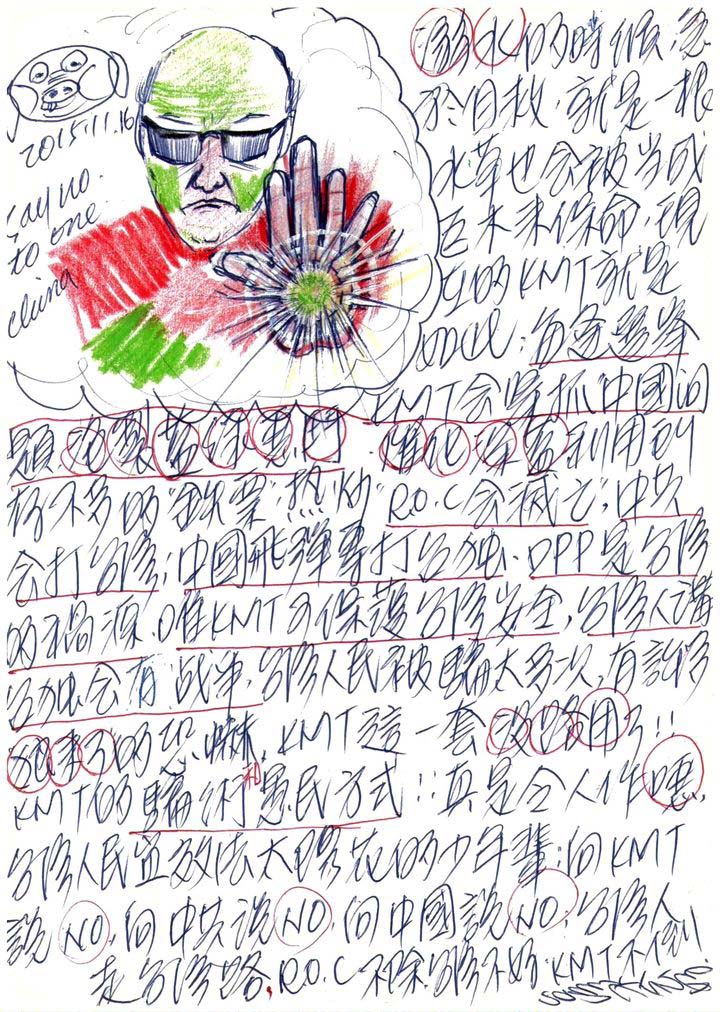 2015.11.16
Say no.
to one.
china
溺水的時候,急
於自救,就是一根
水草也会被当成
巨木来保命,現
在的KMT就是
如此;每逢選舉
KMT会緊抓中國问
題,
催化深藍利用到
R.O.C会滅亡;中共
会打台湾;中國飛弹專打台独.DPP是台湾
的禍源.唯KMT可保護台湾安全,台湾人講
台独会有战争,台湾人民被騙太多次,有許多
的恐嚇,KMT這一套没路用了!!
KMT的騙術和愚民方式!!真是令人作噁,
台湾人民宜效法太陽花的少年輩;向KMT
說NO,向中共說NO,向中國說NO,台湾人
走台湾路,R.O.C不除台湾不好.KMT不倒